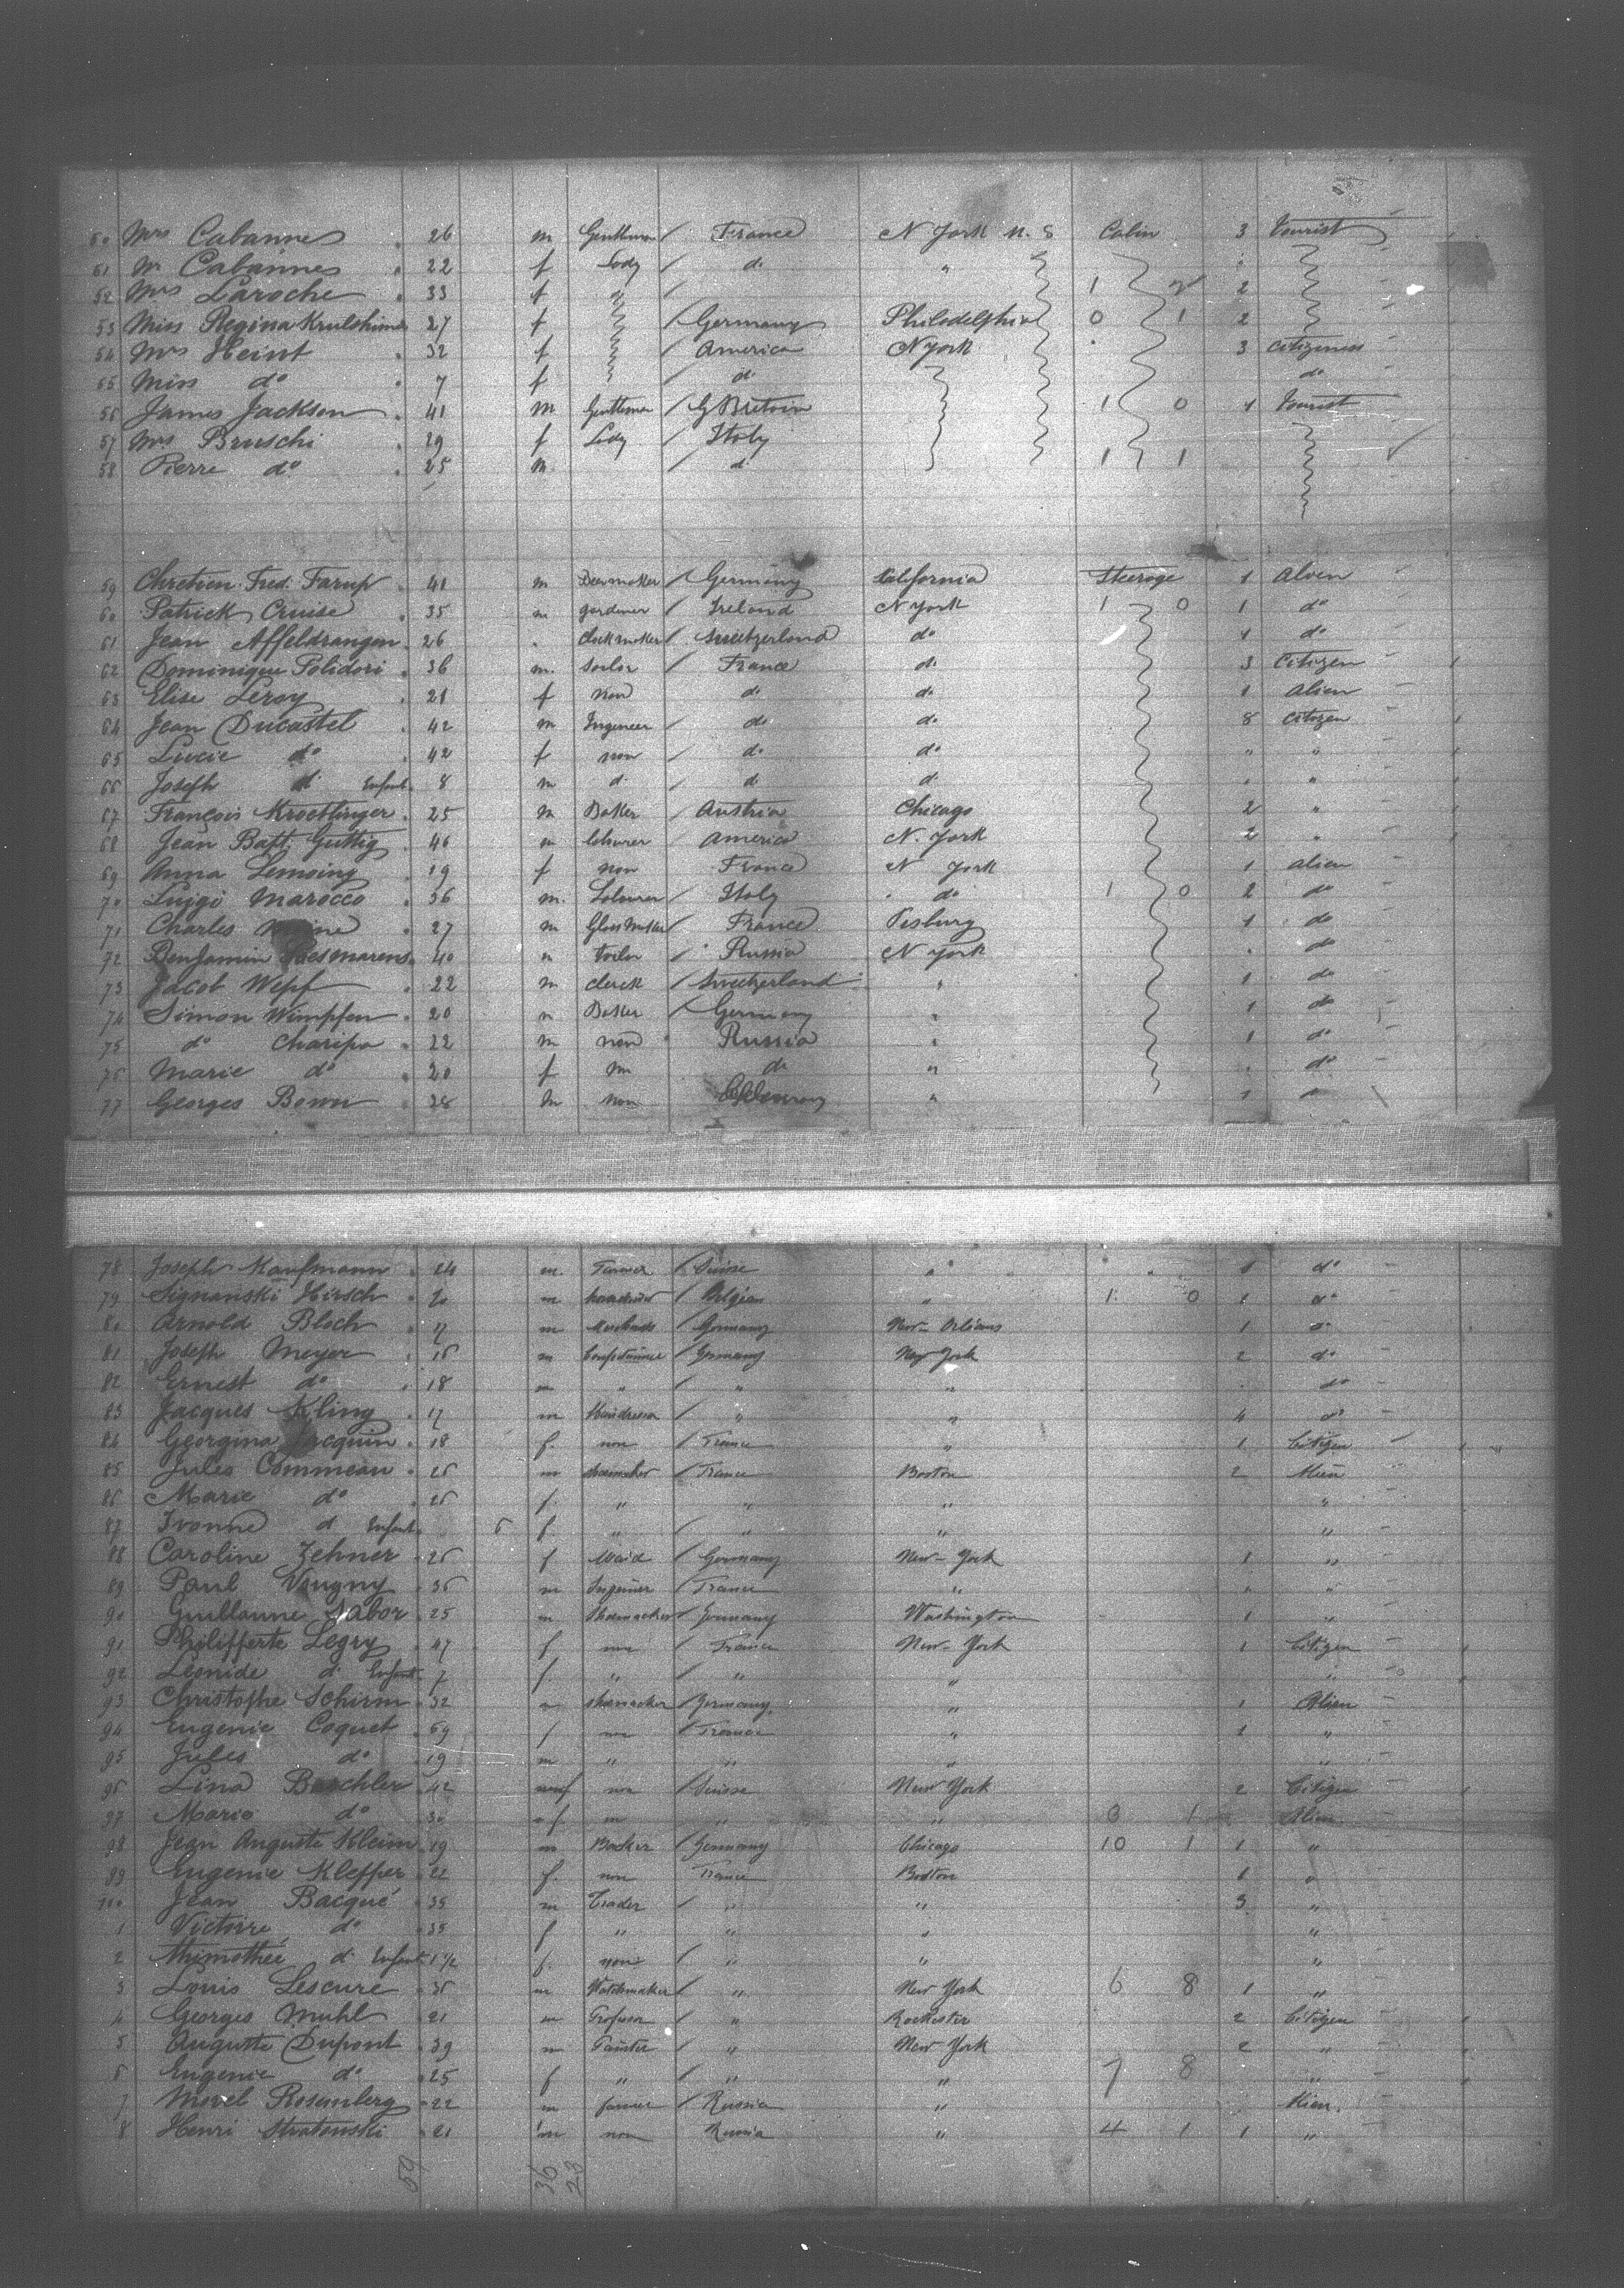 50 Mrs Cabannes 26 m Gentleman France N York U.S Cabin 3 Tourist
51 M. Cabannes 22 f Lady do "
52 Mrs Laroche 33 f " 1 2
53 Miss Regina Krulshimer 27 f Germany Philadelphia 0 1 2
54 Mrs Heint 32 f America N York 3 Citizeness
55 Miss do 7 f do do
56 James Jackson 41 m Gentleman G Britain 1 0 1 Tourist
57 Mrs Bruschi 29 f Lady Italy
58 Pierre do 25 m do 1 1
59 Chretien Fred. Farup 41 m Germany California Steerage 1 Alien
60 Patrick Cruise 35 m gardener Ireland N York 1 0 1 do
61 Jean Affeldrangen 26 Clockmaker Sweetzerland do 1 do
62 Dominique Polidori 36 m. Sailor France do 3 Citizen
63 Elise Leroy 21 f non do do 1 Alien
64 Jean Ducastel 42 m Ingeneer do do 8 Citizen
65 Lucie do 42 f non do do " "
66 Joseph d Enfant 8 m d. d. d. "
67 François Kroetlinger 25 m Baker Austria Chicago 2 "
68 Jean Bapt. Guttig 46 m labourer America N. York 2 "
69 Anna Lemoing 19 f non France N York 1 Alien
70 Luigi Marocco 36 m. Labourer Italy do 1 0 2 do
71 Charles 27 m Glass Maker France Pisburg 1 do
72 Benjamin 40 m tailor Russia N York do
73 Jacob Wepf 22 m clerck Sweetzerland " 1 do
74 Simon Wimpfen 20 m Baker Germany " 1 do
75 do Charipa 22 m non Russia " 1 do
76 Marie do 20 f non do " do
77 Georges Bown 28 m non " 1 do
78 Joseph Kaufmann 24 m. Farmer Suisse " 1 do
79 Signanski Hirsch 20 m Belgian " 1 0 1 do
80 Arnold Bloch 17 m Germany New-Orleans 1 do
81 Joseph Meyer 16 m Germany New York 2 do
82 Ernest do 18 m " " " do
83 Jacques Kling 17 m " " 4 do
84 Georgina Jacquin 18 f. non France " 1 Citizen
85 Jules Commeau 26 m shoemaker France Boston 2 Alien
86 Marie do 26 f. " " " "
87 Ivonne d Enfant 6 f. " " " "
88 Caroline Zehner 26 f Maid Germany New-York 1 "
89 Paul Vougny 36 m Ingeneer France " " "
90 Guillaume Sabor 25 m Shoemacker Germany Washington 1 "
91 Philifferte Legry 47 f non France New-York 1 Citizen
92 Leonide d Enfant 7 f. " " " "
93 Christophe Schirm 32 m shoemacker Germany " 1 Alien
94 Eugenie Coquet 59 f non France " 1 "
95 Jules do 19 m " " " "
96 Lina Baechler 42 f non Suisse New York 2 Citizen
97 Maria do 30 f " " 3 1 Alien
98 Jean Auguste Kleim 19 m Backer Germany Chicago 10 1 1 "
99 Eugenie Klepper 22 f. non France Boston 1 "
100 Jean Bacqué 35 m Trader " " 3 "
1 Victoire do 35 f " " " "
2 Thimothée d Enfant 1 1/2 f. none " "
3 Louis Lescure 36 m Watchmaker " New York 6 8 1 "
4 Georges Muhl 21 m Profesor " Rochester 2 Citizen
5 Auguste Dupont 39 m Painter " New York 2 "
6 Eugenie do 25 f " " " 7 8 "
7 Movel Rosemberg 22 m farmer Russia " Alien.
8 Henri Stratonski 21 m non Russia " 4 1 1 "
59 36 23